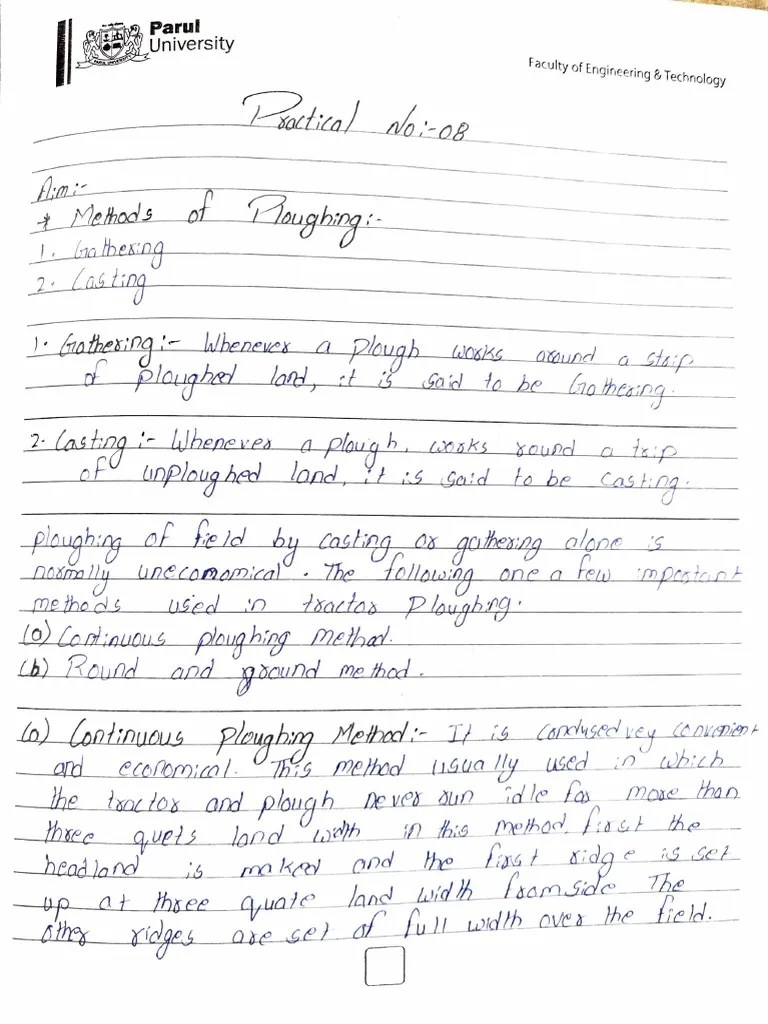 Parul
University
Faculty of Engineering & Technology
Practical No:-08
Aim:-
* Methods of Ploughing:-
1. Gathering
2. Casting
1. Gathering:- Whenever a plough works around a strip
of ploughed land, it is said to be Gathering.
2. Casting:- Whenever a plough, works round a trip
of unploughed land, it is said to be casting.
ploughing of field by casting or gathering alone is
normally uneconomical. The following one a few important
methods used in tractor Ploughing.
(a) Continuous ploughing method.
(b) Round and ground method.
(a) Continuous Ploughing Method:- It is condused vey convenient
and economical. This method usually used in which
the tractor and plough never run idle for more than
three quets land width in this method. first the
headland is maked and the first ridge is set
up at three quate land width from side The
other ridges are set of full width over the field.